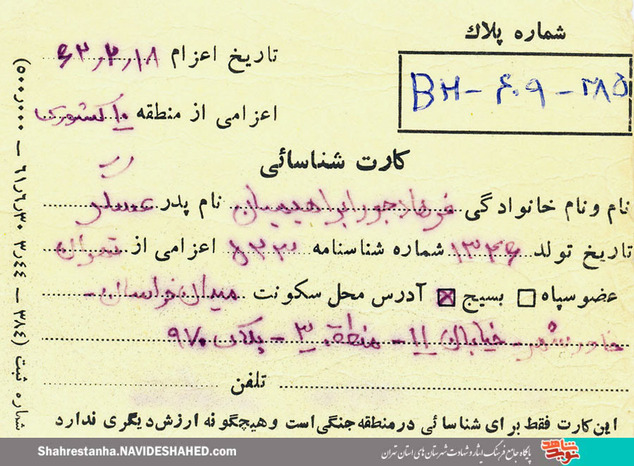 شماره پلاك
BH - ۶۰۹ - ۲۸۵
تاریخ اعزام ۶۲٫۲٫۱۸
اعزامی از منطقه ۱۰ کشوری
کارت شناسائی
نام و نام خانوادگی ابراهیمیان نام پدر عسگر
تاریخ تولد ۱۳۴۶ شماره شناسنامه اعزامی از تهران
عضو سپاه بسیج آدرس محل سکونت میدان خراسان -
خاور شهر - خیابان ۱۱ - منطقه ۳ - پلاک ۹۷۰
تلفن
این کارت فقط برای شناسائی در منطقه جنگی است و هیچگونه ارزش دیگری ندارد
شماره ثبت (۳۸۴ — ۳٫۴۴ ۶۱٫۶٫۳۰ — ۵۰۰٫۰۰۰)
Shahrestanha.NAVIDESHAHED.com
پایگاه جامع فرهنگ ایثار و شهادت شهرستان های استان تهران
نوید شاهد